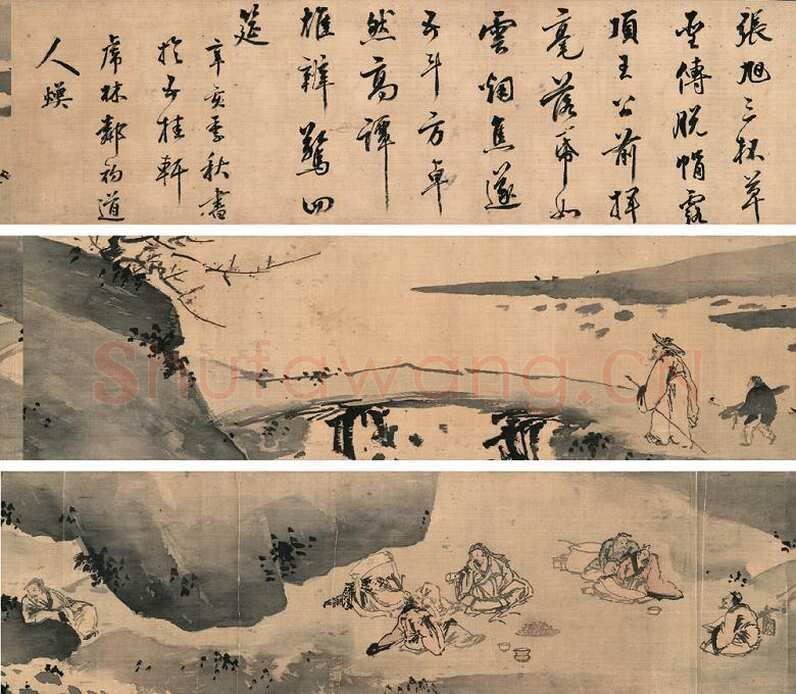 張旭三杯草
聖傳脫帽露
頂王公前揮
毫落帋如
雲烟焦遂
五斗方卓
然高譚
雄辨驚四
筵
辛亥季秋書
於五桂軒
虎林道
人
Shufawang.CN